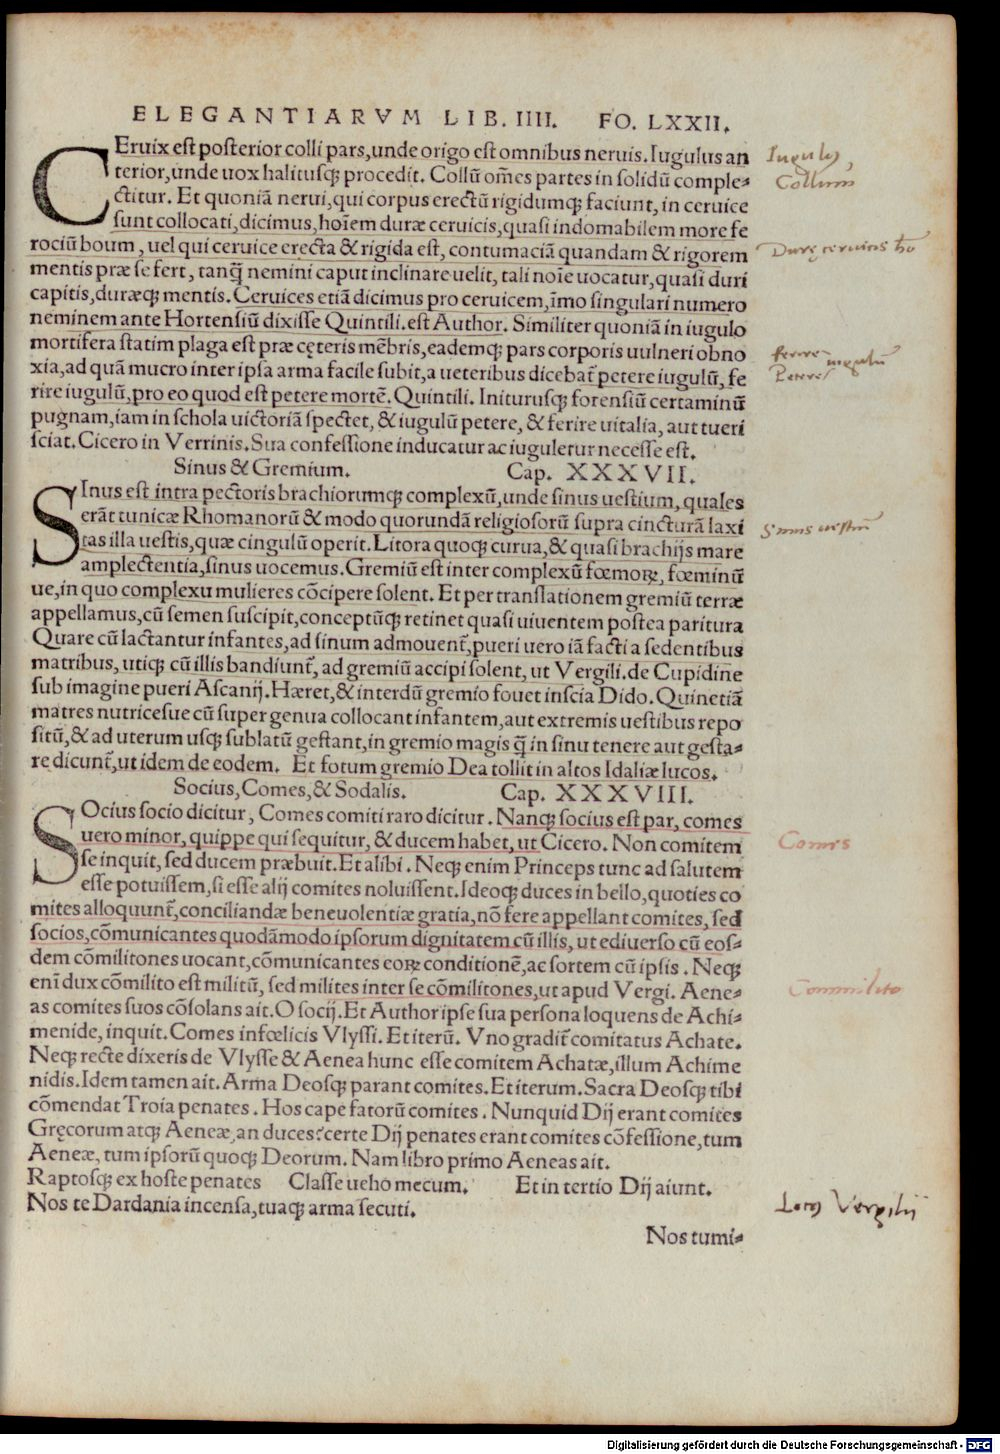 ELEGANTIARVM LIB. IIII. FO. LXXII.
CEruix est posterior colli pars, unde origo est omnibus neruis. Iugulus an
terior, unde uox halitusq́; procedit. Collũ om̃es partes in solidũ comple⸗
ctitur. Et quoniã nerui, qui corpus erectũ rigidumq́; faciunt, in ceruice
sunt collocati, dicimus, hoĩem duræ ceruicis, quasi indomabilem more fe
rociũ boum, uel qui ceruice erecta & rigida est, contumaciã quandam & rigorem
mentis præ se fert, tanq̃ nemini caput inclinare uelit, tali noĩe uocatur, quasi duri
capitis, duræq́; mentis. Ceruices etiã dicimus pro ceruicem, ĩmo singulari numero
neminem ante Hortensiũ dixisse Quintili. est Author. Similiter quoniã in iugulo
mortifera statim plaga est præ cęteris mẽbris, eademq́; pars corporis uulneri obno
xia, ad quã mucro inter ipsa arma facile subit, a ueteribus dicebat̃ petere iugulũ, fe
rire iugulũ, pro eo quod est petere mortẽ. Quintili. Initurusq́; forensiũ certaminũ
pugnam, iam in schola uictoriã spectet, & iugulũ petere, & ferire uitalia, aut tueri
sciat. Cicero in Verrinis. Sua confessione inducatur ac iuguletur necesse est.
Sinus & Gremium. Cap. XXXVII.
SInus est intra pectoris brachiorumq́; complexũ, unde sinus uestium, quales
erãt tunicæ Rhomanorũ & modo quorundã religiosorũ supra cincturã laxi
tas illa uestis, quæ cingulũ operit. Litora quoq́; curua, & quasi brachijs mare
amplectentia, sinus uocemus. Gremiũ est inter complexũ fœmoꝝ, fœminũ
ue, in quo complexu mulieres cõcipere solent. Et per translationem gremiũ terræ
appellamus, cũ semen suscipit, conceptũq́; retinet quasi uiuentem postea paritura
Quare cũ lactantur infantes, ad sinum admouent̃, pueri uero iã facti a sedentibus
matribus, utiq́; cũ illis bandiunt̃, ad gremiũ accipi solent, ut Vergili. de Cupidine
sub imagine pueri Ascanij. Hæret, & interdũ gremio fouet inscia Dido. Quinetiã
matres nutricesue cũ super genua collocant infantem, aut extremis uestibus repo
sitũ, & ad uterum usq́; sublatũ gestant, in gremio magis q̃ in sinu tenere aut gesta⸗
re dicunt̃, ut idem de eodem. Et fotum gremio Dea tollit in altos Idaliæ lucos.
Socius, Comes, & Sodalis. Cap. XXXVIII.
SOcius socio dicitur, Comes comiti raro dicitur. Nanq́; socius est par, comes
uero minor, quippe qui sequitur, & ducem habet, ut Cicero. Non comitem
se inquit, sed ducem præbuit. Et alibi. Neq́; enim Princeps tunc ad salutem
esse potuissem, si esse alij comites noluissent. Ideoq́; duces in bello, quoties co
mites alloquunt̃, conciliandæ beneuolentiæ gratia, nõ fere appellant comites, sed
socios, cõmunicantes quodãmodo ipsorum dignitatem cũ illis, ut ediuerso cũ eos⸗
dem cõmilitones uocant, cõmunicantes eoꝝ conditionẽ, ac sortem cũ ipsis. Neq́;
eni dux cõmilito est militũ, sed milites inter se cõmilitones, ut apud Vergi. Aene⸗
as comites suos cõsolans ait. O socij. Et Author ipse sua persona loquens de Achi⸗
menide, inquit. Comes infœlicis Vlyssi. Et iterũ. Vno gradit̃ comitatus Achate.
Neq́; recte dixeris de Vlysse & Aenea hunc esse comitem Achatæ, illum Achime
nidis. Idem tamen ait. Arma Deosq́; parant comites. Et iterum. Sacra Deosq́; tibi
cõmendat Troia penates. Hos cape fatorũ comites. Nunquid Dij erant comites
Gręcorum atq́; Aeneæ, an duces? certe Dij penates erant comites cõfessione, tum
Aeneæ, tum ipsorũ quoq́; Deorum. Nam libro primo Aeneas ait.
Raptosq́; ex hoste penates Classe ueho mecum. Et in tertio Dij aiunt.
Nos te Dardania incensa, tuaq́; arma secuti.
Nos tumi⸗
Iugulus,
Collum
Durę ceruicis hõ
ferire iugulũ
Petere
Sinus uestiũ
Comes
Commilito
Locus Vergilii
Digitalisierung gefördert durch die Deutsche Forschungsgemeinschaft - DFG